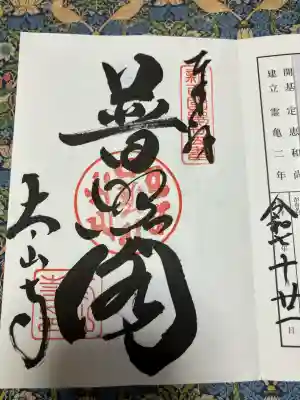 開基 定恵和尚
建立 霊亀二年
令和七年十廿一日
奉拝
普照閣
太山寺